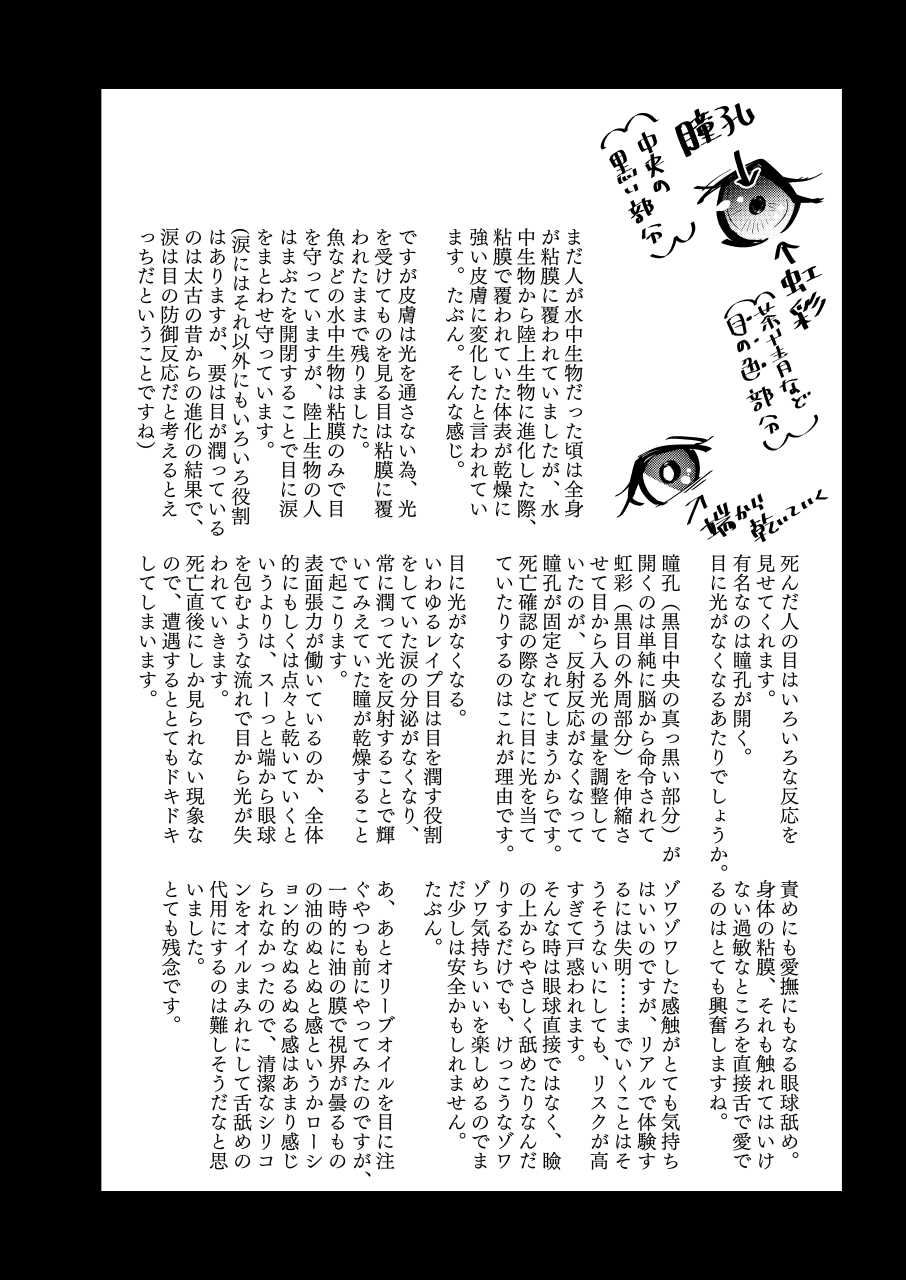 瞳孔
中央の
黒い部分
虹彩
茶や青など
目の色部分
端から
乾いていく
まだ人が水中生物だった頃は全身
が粘膜に覆われていましたが、水
中生物から陸上生物に進化した際、
粘膜で覆われていた体表が乾燥に
強い皮膚に変化したと言われてい
ます。たぶん。そんな感じ。
ですが皮膚は光を通さない為、光
を受けてものを見る目は粘膜に覆
われたままで残りました。
魚などの水中生物は粘膜のみで目
を守っていますが、陸上生物の人
はまぶたを開閉することで目に涙
をまとわせ守っています。
(涙にはそれ以外にもいろいろ役割
はありますが、要は目が潤っている
のは太古の昔からの進化の結果で、
涙は目の防御反応だと考えるとえ
っちだということですね)
死んだ人の目はいろいろな反応を
見せてくれます。
有名なのは瞳孔が開く。
目に光がなくなるあたりでしょうか。
瞳孔（黒目中央の真っ黒い部分）が
開くのは単純に脳から命令されて
虹彩（黒目の外周部分）を伸縮さ
せて目から入る光の量を調整して
いたのが、反射反応がなくなって
瞳孔が固定されてしまうからです。
死亡確認の際などに目に光を当て
ていたりするのはこれが理由です。
目に光がなくなる。
いわゆるレイプ目は目を潤す役割
をしていた涙の分泌がなくなり、
常に潤って光を反射することで輝
いてみえていた瞳が乾燥すること
で起こります。
表面張力が働いているのか、全体
的にもしくは点々と乾いていくと
いうよりは、スーっと端から眼球
を包むような流れで目から光が失
われていきます。
死亡直後にしか見られない現象な
ので、遭遇するととてもドキドキ
してしまいます。
責めにも愛撫にもなる眼球舐め。
身体の粘膜、それも触れてはいけ
ない過敏なところを直接舌で愛で
るのはとても興奮しますね。
ゾワゾワした感触がとても気持ち
はいいのですが、リアルで体験す
るには失明……までいくことはそ
うそうないにしても、リスクが高
すぎて戸惑われます。
そんな時は眼球直接ではなく、瞼
の上からやさしく舐めたりなんだ
りするだけでも、けっこうなゾワ
ゾワ気持ちいいを楽しめるのでま
だ少しは安全かもしれません。
たぶん。
あ、あとオリーブオイルを目に注
ぐやつも前にやってみたのですが、
一時的に油の膜で視界が曇るもの
の油のぬとぬと感というかローシ
ョン的なぬるぬる感はあまり感じ
られなかったので、清潔なシリコ
ンをオイルまみれにして舌舐めの
代用にするのは難しそうだなと思
いました。
とても残念です。